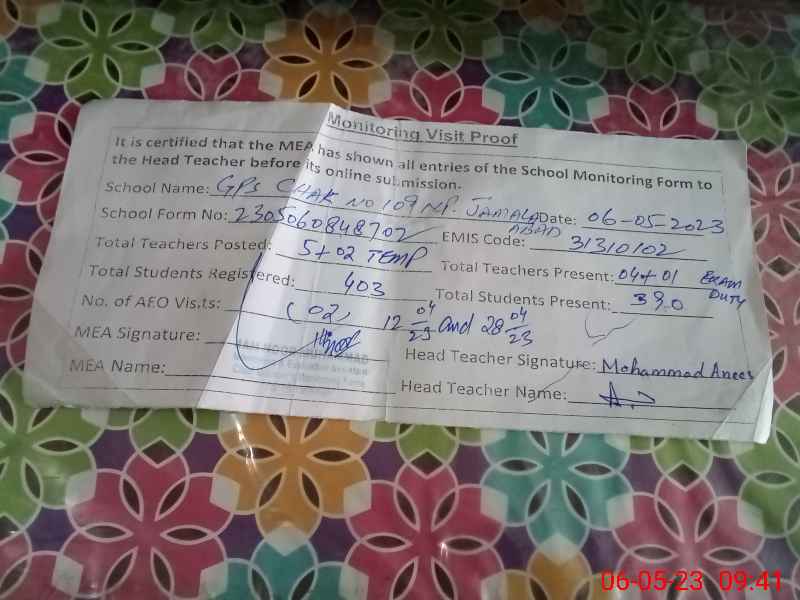 Monitoring Visit Proof
It is certified that the MEA has shown all entries of the School Monitoring Form to
the Head Teacher before its online submission.
School Name: GPS CHAK NO 109 NP. JAMALD ABAD Date: 06-05-2023
School Form No: 2305060848702 EMIS Code: 31310102
Total Teachers Posted: 5+02 TEMP Total Teachers Present: 04+01 EXAM DUTY
Total Students Registered: 403 Total Students Present: 390
No. of AEO Visits: (02) 12 04/23 and 28 04/23
MEA Signature: Head Teacher Signature: Mohammad Anees
MEA Name: Head Teacher Name:
06-05-23 09:41